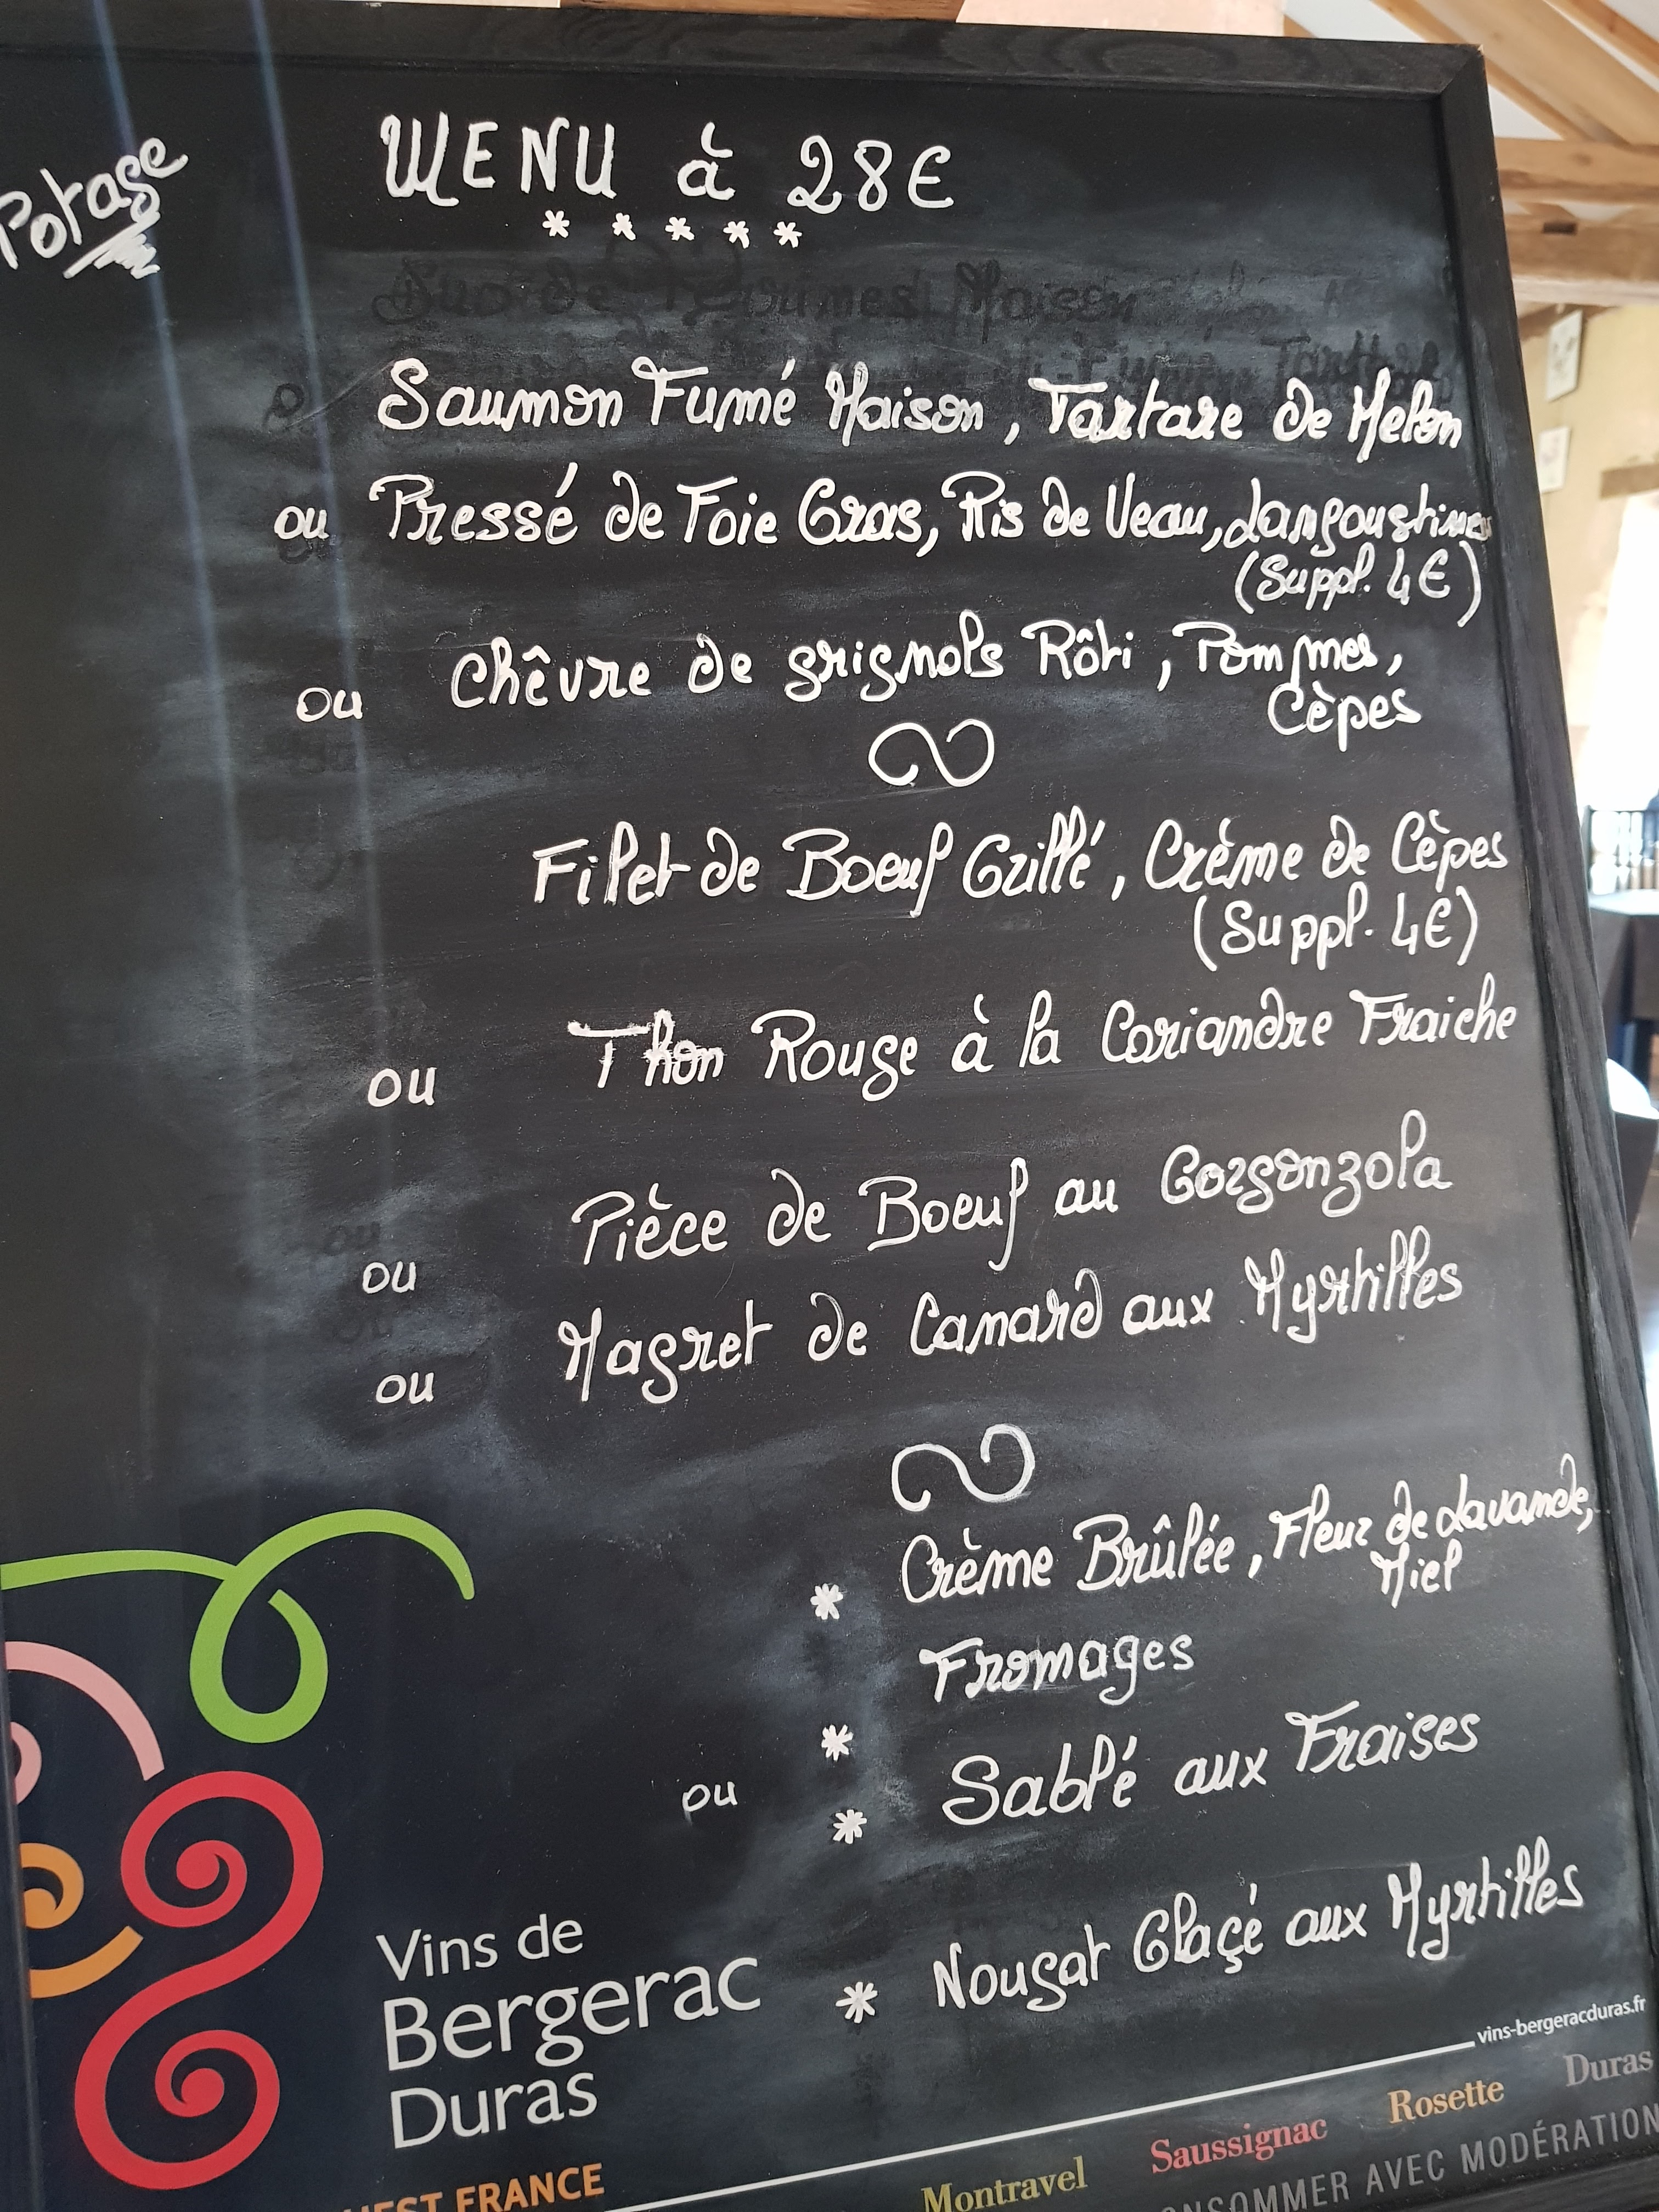 Potage
MENU à 28€
* * * * *
Saumon Fumé Maison, Tartare de Melon
ou Pressé de Foie Gras, Ris de Veau, Langoustines
(Suppl. 4€)
ou Chêvre de grignols Rôti, Pommes,
Cèpes
Filet de Boeuf Grillé, Crème de Cèpes
(Suppl. 4€)
ou Thon Rouge à la Coriandre Fraiche
ou Pièce de Boeuf au Gorgonzola
ou Magret de Canard aux Myrtilles
* Crème Brûlée, Fleur de Lavande,
Miel
* Fromages
ou * Sablé aux Fraises
* Nougat Glaçé aux Myrtilles
Vins de
Bergerac
Duras
vins-bergeracduras.fr
FRANCE
Montravel Saussignac Rosette Duras
AVEC MODÉRATION